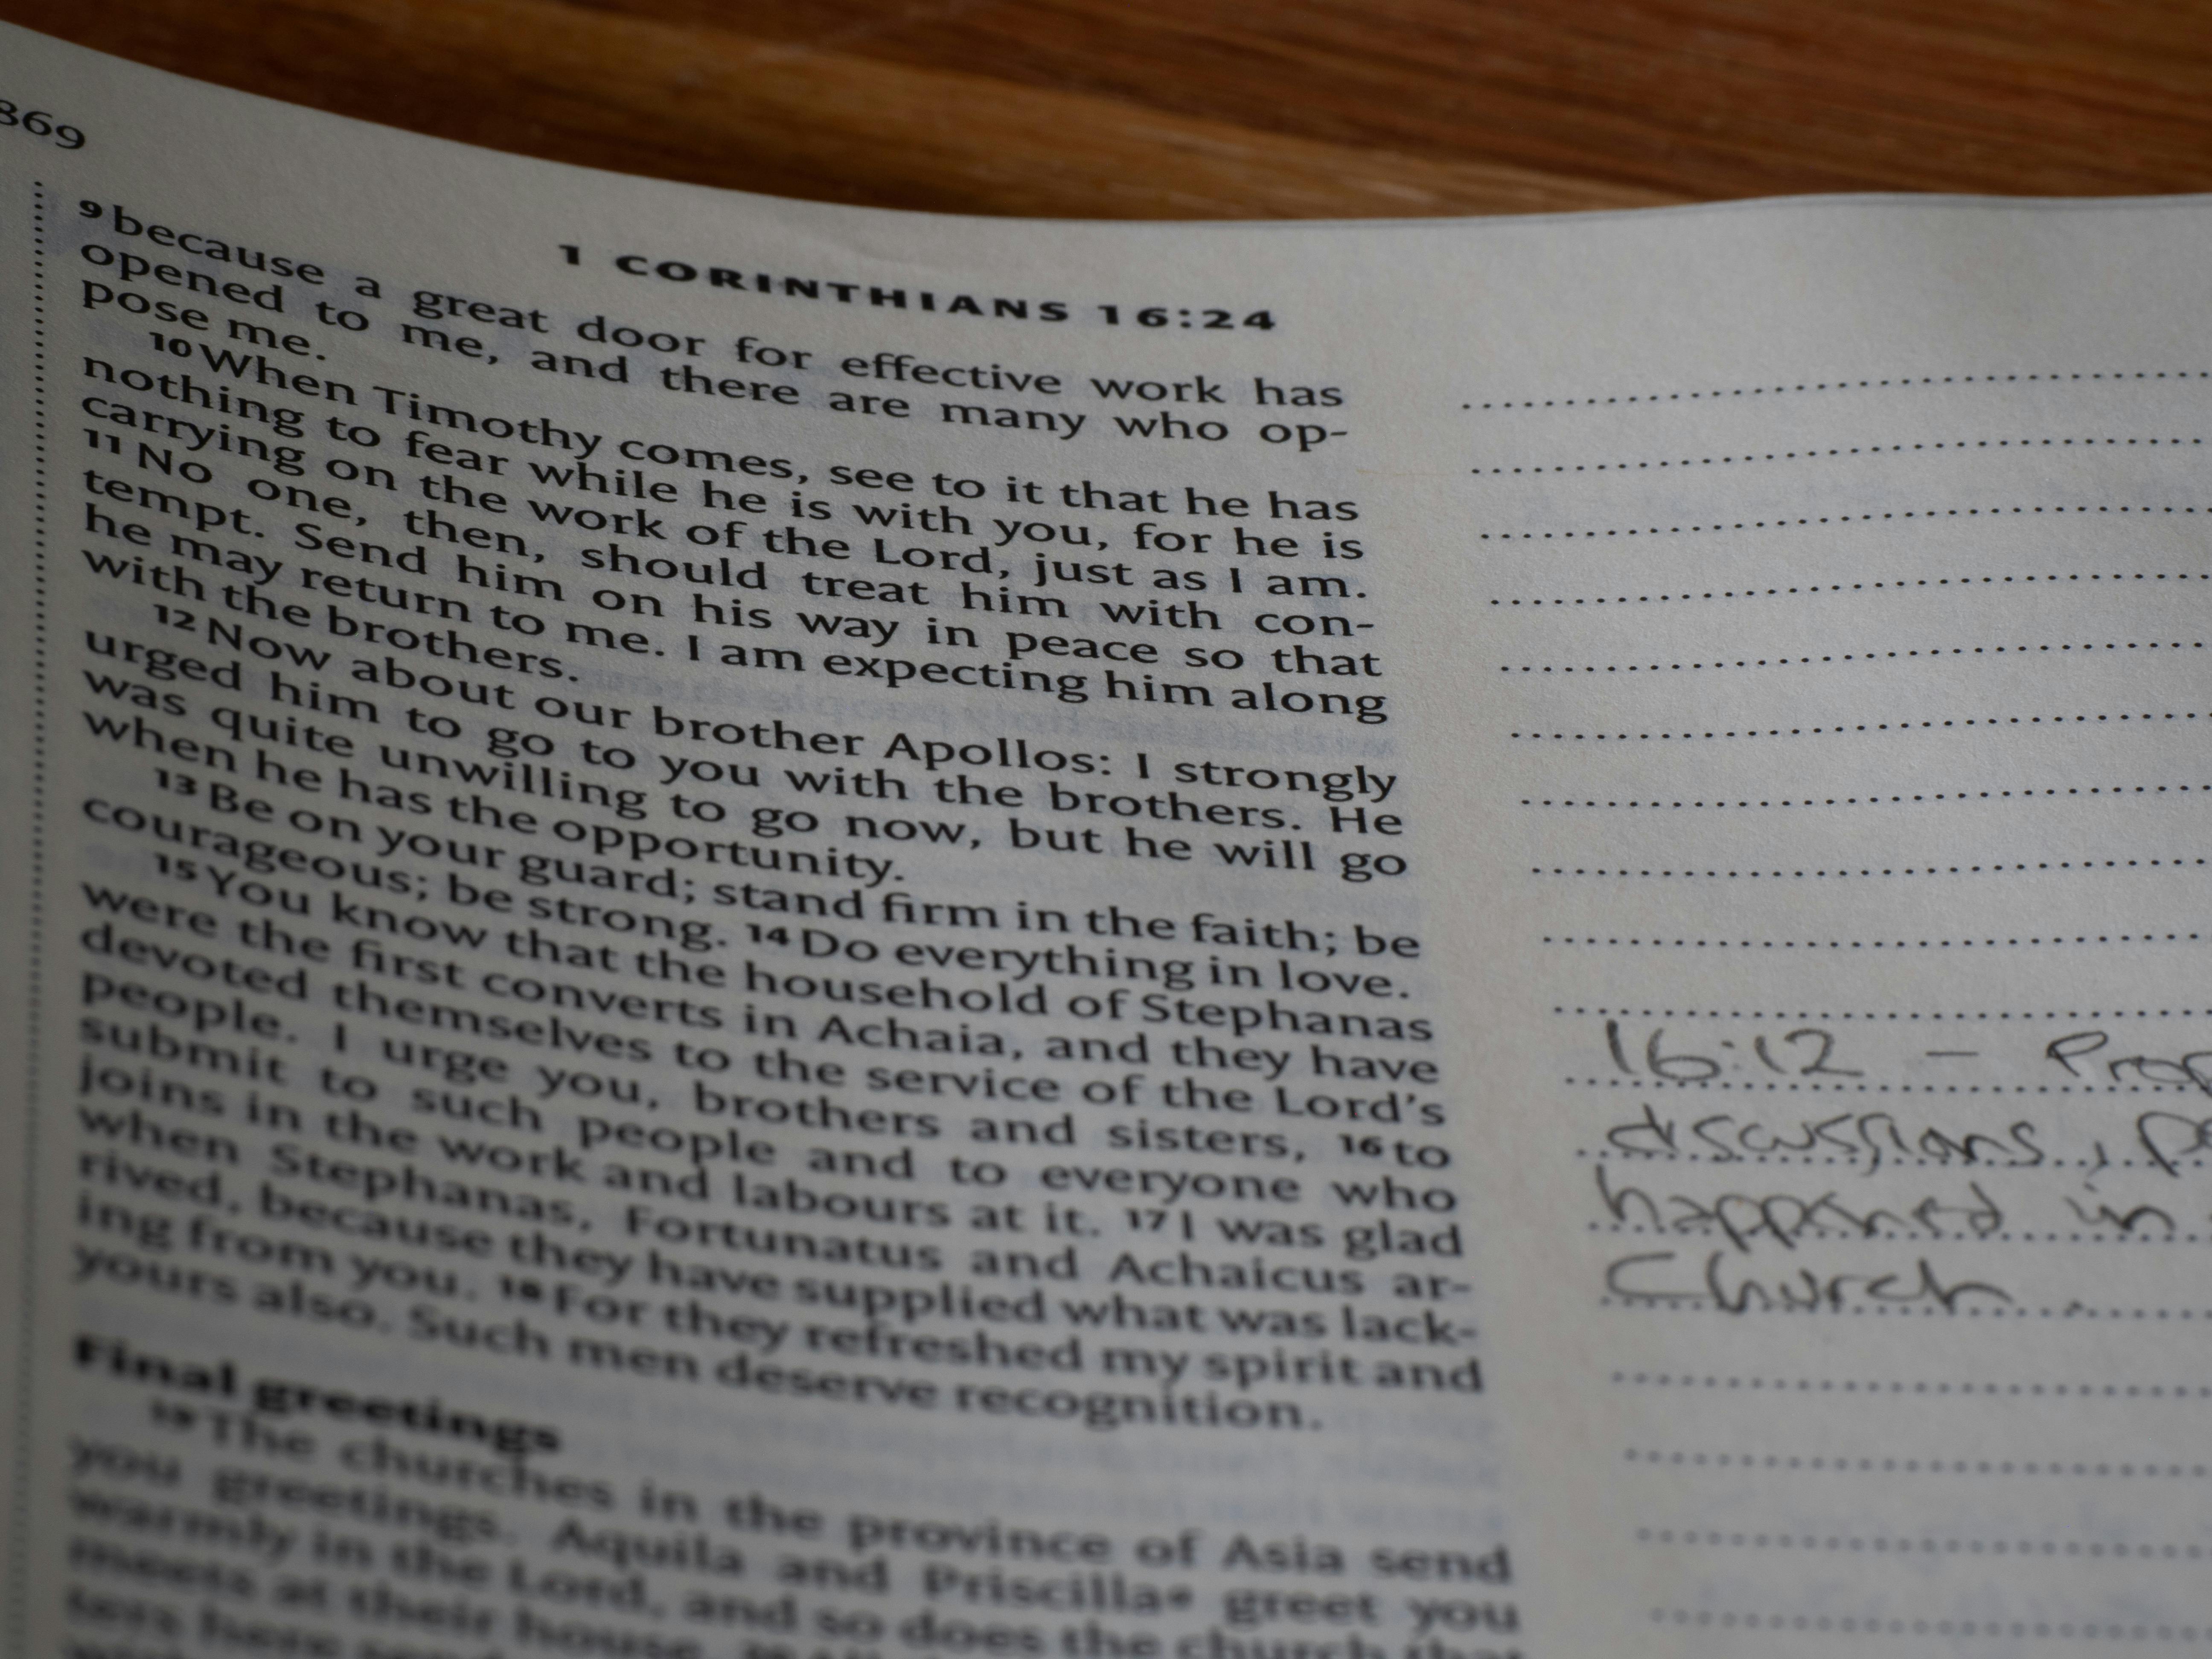 869
1 CORINTHIANS 16:24
9 because a great door for effective work has
opened to me, and there are many who op-
pose me.
10 When Timothy comes, see to it that he has
nothing to fear while he is with you, for he is
carrying on the work of the Lord, just as I am.
11 No one, then, should treat him with con-
tempt. Send him on his way in peace so that
he may return to me. I am expecting him along
with the brothers.
12 Now about our brother Apollos: I strongly
urged him to go to you with the brothers. He
was quite unwilling to go now, but he will go
when he has the opportunity.
13 Be on your guard; stand firm in the faith; be
courageous; be strong. 14 Do everything in love.
15 You know that the household of Stephanas
were the first converts in Achaia, and they have
devoted themselves to the service of the Lord's
people. I urge you, brothers and sisters, 16 to
submit to such people and to everyone who
joins in the work and labours at it. 17 I was glad
when Stephanas, Fortunatus and Achaicus ar-
rived, because they have supplied what was lack-
ing from you. 18 For they refreshed my spirit and
yours also. Such men deserve recognition.
Final greetings
19 The churches in the province of Asia send
you greetings. Aquila and Priscilla greet you
warmly in the Lord, and so does the church that
meets at their house.
16:12 –
discussions,
happened in
Church